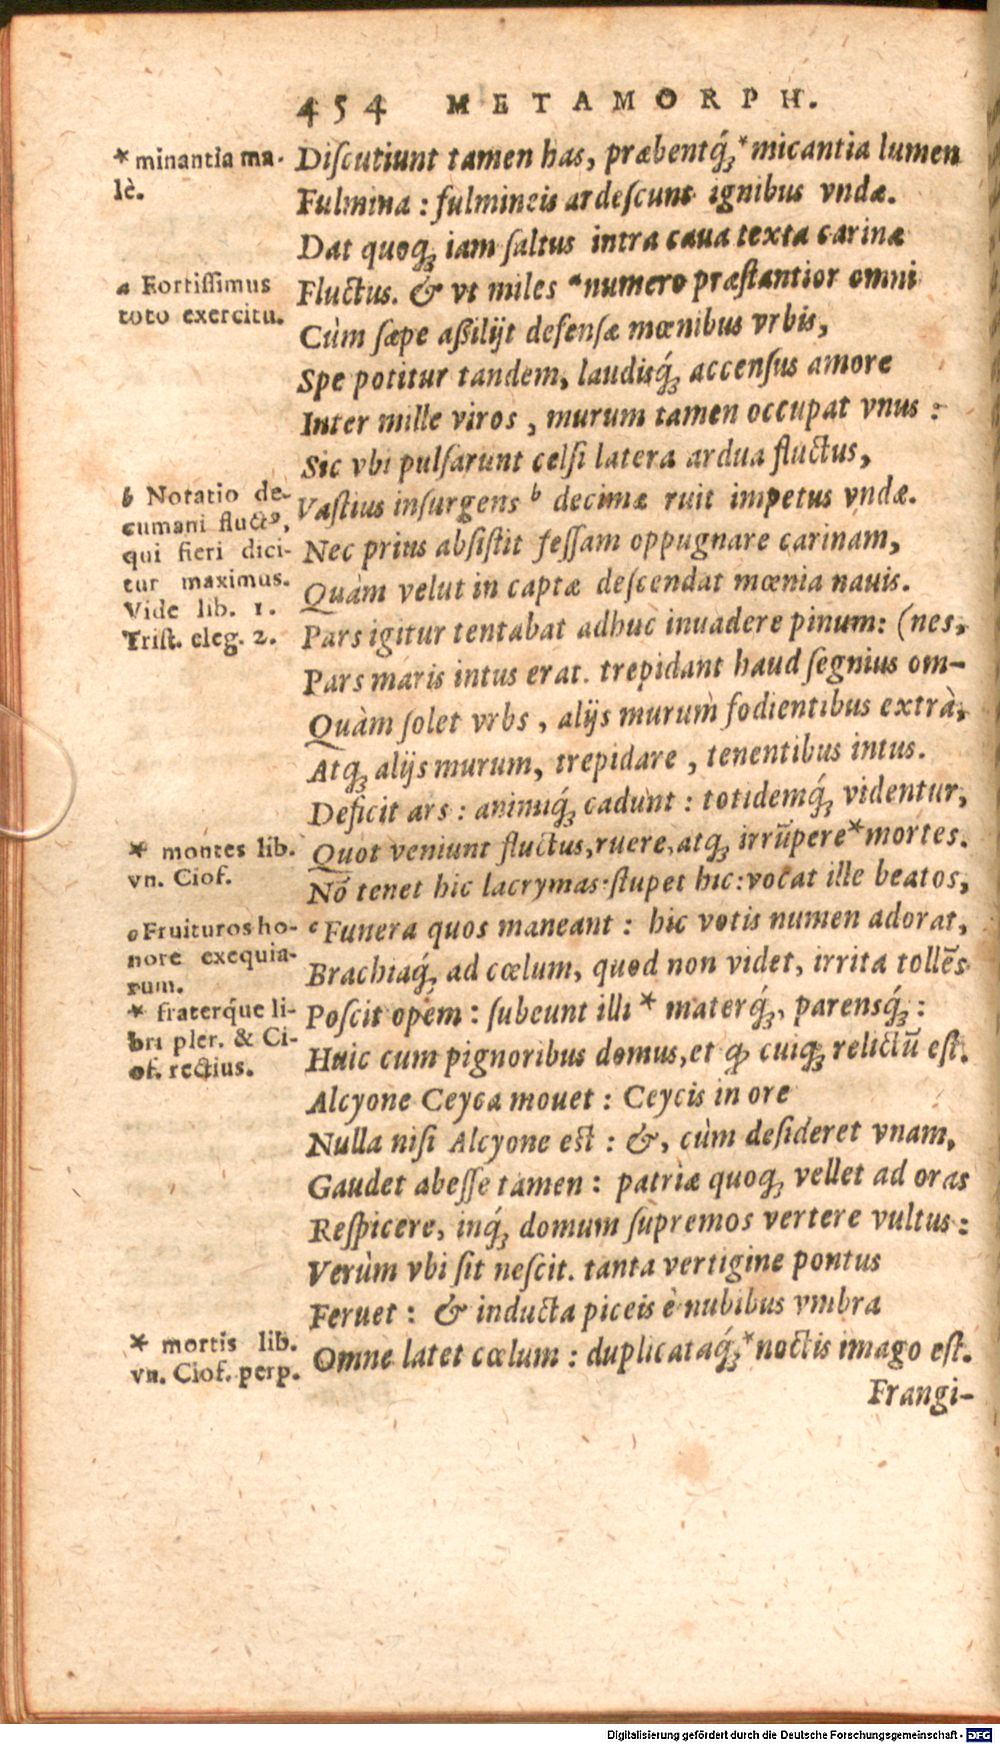 454 METAMORPH.
* minantia ma-
lè.
Diſcutiunt tamen has, præbentq́ꝫ *micantia lumen
Fulmina : fulmineis ardeſcunt ignibus vndæ.
Dat quoqꝫ iam ſaltus intra caua texta carinæ
a Fortiſſimus
toto exercitu.
Fluctus. & vt miles ᵃnumero præſtantior omni
Cùm ſæpe aßilijt defenſæ mœnibus vrbis,
Spe potitur tandem, laudisq́ꝫ accenſus amore
Inter mille viros , murum tamen occupat vnus :
Sic vbi pulſarunt celſi latera ardua fluctus,
b Notatio de-
cumani fluctꝰ,
qui fieri dici-
tur maximus.
Vide lib. 1.
Triſt. eleg. 2.
Vaſtius inſurgens ᵇ decimæ ruit impetus vndæ.
Nec prius abſiſtit feſſam oppugnare carinam,
Quàm velut in captæ deſcendat mœnia nauis.
Pars igitur tentabat adhuc inuadere pinum: (nes,
Pars maris intus erat. trepidant haud ſegnius om-
Quàm ſolet vrbs , alijs murum fodientibus extrà,
Atqꝫ alijs murum, trepidare , tenentibus intus.
Deficit ars : animiq́ꝫ cadunt : totidemq́ꝫ videntur,
* montes lib.
vn. Ciof.
Quot veniunt fluctus, ruere, atqꝫ irrūpere *mortes.
Nō tenet hic lacrymas: ſtupet hic: vocat ille beatos,
c Fruituros ho-
nore exequia-
rum.
ᶜFunera quos maneant : hic votis numen adorat,
Brachiaq́ꝫ ad cœlum, quod non videt, irrita tollēs
* fraterq́ue li-
bri pler. & Ci-
of. rectius.
Poſcit opem : ſubeunt illi * materq́ꝫ, parensq́ꝫ :
Huic cum pignoribus domus, et ꝙ cuiqꝫ relictū eſt.
Alcyone Ceyca mouet : Ceycis in ore
Nulla niſi Alcyone est : &, cùm deſideret vnam,
Gaudet abeſſe tamen : patriæ quoqꝫ vellet ad oras
Reſpicere, inq́ꝫ domum ſupremos vertere vultus :
Verùm vbi ſit neſcit. tanta vertigine pontus
Feruet : & inducta piceis è nubibus vmbra
* mortis lib.
vn. Ciof. perp.
Omne latet cœlum : duplicataq́ꝫ *noctis imago eſt.
Frangi-
Digitalisierung gefördert durch die Deutsche Forschungsgemeinschaft - DFG